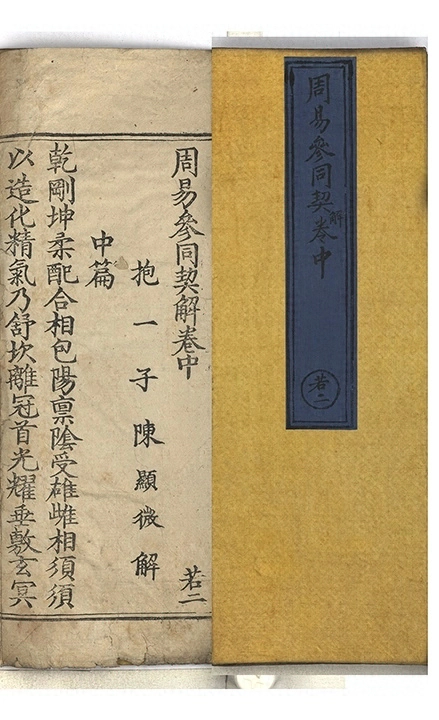 周易參同契解卷中
若二
周易參同契解卷中
若二
抱一子陳顯微解
中篇
乾剛坤柔配合相包陽稟陰受雄雌相須須
以造化精氣乃舒坎離冠首光耀垂敷玄冥